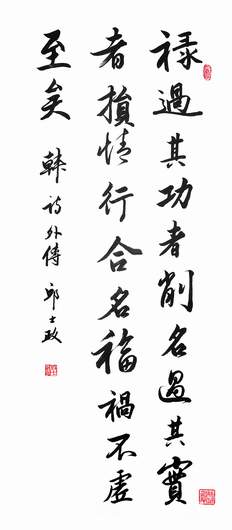 禄過其功者削名過其實
者損情行合名福禍不虛
至矣
韓詩外傳 邱士政